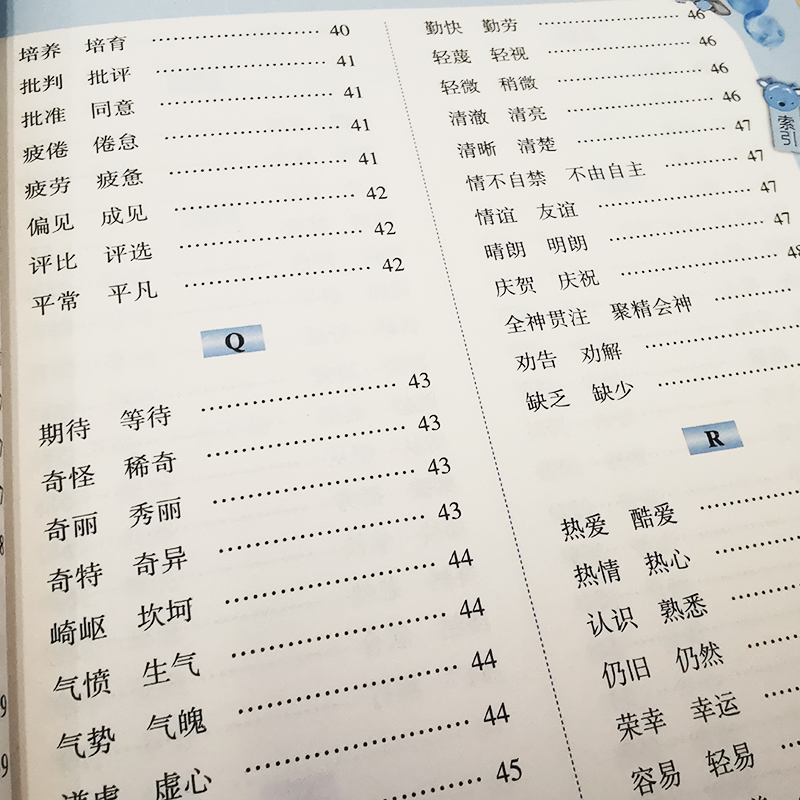 培养 培育 ………………… 40
批判 批评 ………………… 41
批准 同意 ………………… 41
疲倦 倦怠 ………………… 41
疲劳 疲惫 ………………… 41
偏见 成见 ………………… 42
评比 评选 ………………… 42
平常 平凡 ………………… 42
Q
期待 等待 ………………… 43
奇怪 稀奇 ………………… 43
奇丽 秀丽 ………………… 43
奇特 奇异 ………………… 43
崎岖 坎坷 ………………… 44
气愤 生气 ………………… 44
气势 气魄 ………………… 44
谦虚 虚心 ………………… 44
………………… 45
勤快 勤劳 ………………… 46
轻蔑 轻视 ………………… 46
轻微 稍微 ………………… 46
清澈 清亮 ………………… 46
清晰 清楚 ………………… 47
情不自禁 不由自主 ………… 47
情谊 友谊 ………………… 47
晴朗 明朗 ………………… 47
庆贺 庆祝 ………………… 48
全神贯注 聚精会神 …………
劝告 劝解 …………………
缺乏 缺少 …………………
R
热爱 酷爱 …………………
热情 热心 …………………
认识 熟悉 …………………
仍旧 仍然 …………………
荣幸 幸运 …………………
容易 轻易 …………………
索引